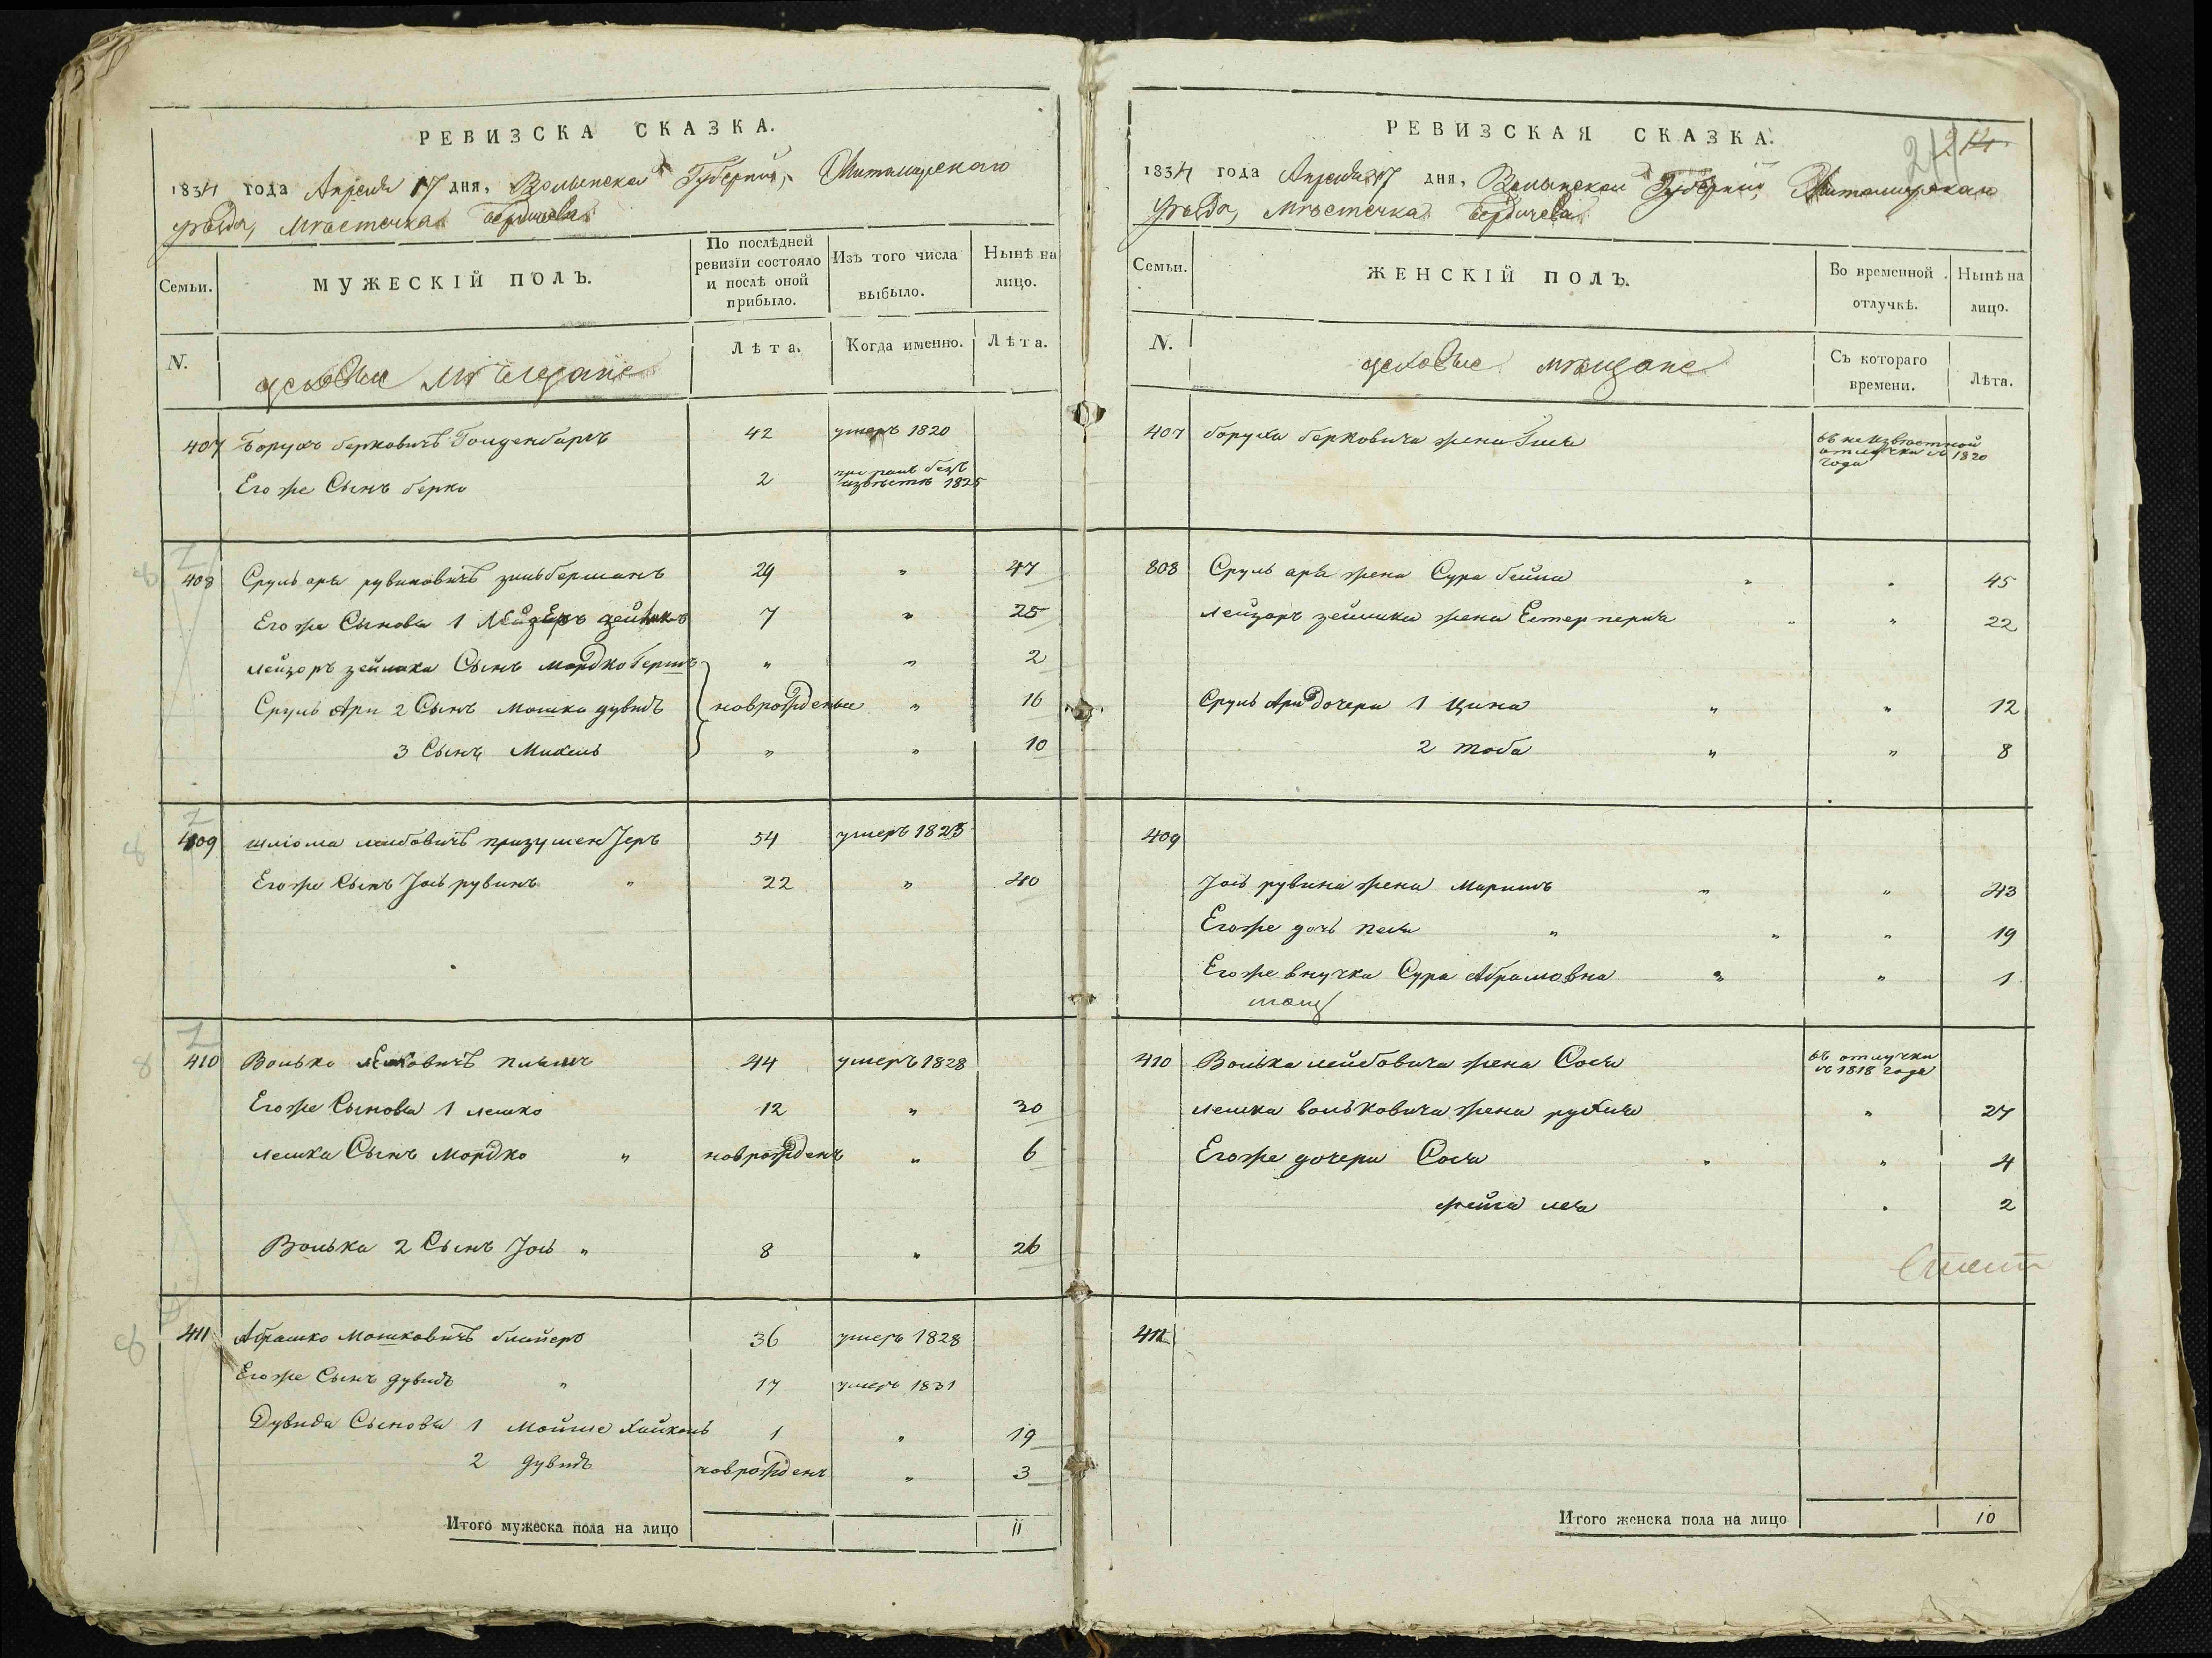 РЕВИЗСКА СКАЗКА.
1834 года Апреля 17 дня, Волынской Губернии, Житомирскаго
уѣзда, Мѣстечка Бердичева
Семьи.
МУЖЕСКІЙ ПОЛЪ.
По послѣдней ревизіи состояло и послѣ оной прибыло.
Изъ того числа выбыло.
Нынѣ на лицо.
N.
цеховые мѣщане
Лѣта.
Когда именно.
Лѣта.
407 Борухъ берковичъ Голденбаргъ 42 умеръ 1820
Его же Сынъ берко 2 безъ извѣстн 1825
408 Сруль аръя рувиновичъ зильберманъ 29 " 47
Его же Сыновья 1 Лейзоръ зейликъ 7 " 25
лейзоръ зейлика Сынъ мордко Гершъ " " 2
Сруль Ари 2 Сынъ мошко дувидъ новрожденые " 16
3 Сынъ Михель " " 10
409 шліома лейбовичъ 54 умеръ 1825
Его же Сынъ Јось рувинъ " 22 " 40
410 Волько 44 умеръ 1828
Его же Сыновья 1 лешко 12 " 30
лешка Сынъ Мордко " новрожденъ " 6
Волька 2 Сынъ Јось " 8 " 26
411 Абрашко Мошковичъ 36 умеръ 1828
Его же Сынъ дувидъ " 17 умеръ 1831
Дувида Сыновья 1 Мойше Хаикель 1 " 19
2 дувидъ новрожденъ " 3
Итого мужеска пола на лицо 11
РЕВИЗСКАЯ СКАЗКА.
214
1834 года Апреля 17 дня, Волынской Губернии, Житомирскаго
уѣзда, Мѣстечка Бердичева
Семьи.
ЖЕНСКІЙ ПОЛЪ.
Во временной отлучкѣ.
Нынѣ на лицо.
N.
цеховые мѣщане
Съ котораго времени.
Лѣта.
407 боруха берковича жена въ неизвѣстной отлучки съ 1820 года
808 Сруль аръя жена Сура бейла " " 45
лейзоръ зейлика жена Естер перля " " 22
Сруль Ари дочери 1 Цина " " 12
2 тоба " " 8
409
Јось рувина жена Маримъ " " 43
Его же дочь песя " " " 19
Его же внучка Сура Абрамовна " " 1
410 Волька лейбовича жена Сося въ отлучки съ 1818 года
лешка вольковича жена рухля " 27
Его же дочери Сося " " 4
фейга лея " 2
411
Итого женска пола на лицо 10